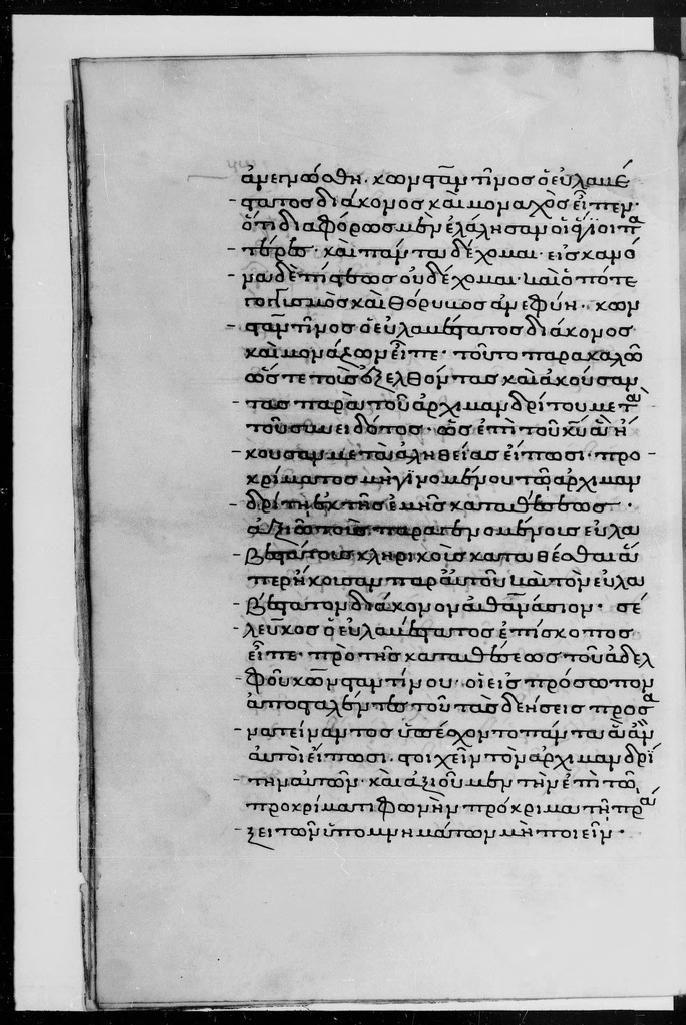 ἀνεγνώσθη. κωνσταντῖνος ὁ εὐλαβέ
στατος διάκονος καὶ μοναχὸς εἶπεν·
ὅτι διαφόρως μὲν ἐλάλησαν οἱ ἅγιοι πα
τέρες· καὶ πάντα δέχομαι· εἰς κανό
να δὲ πίστεως οὐ δέχομαι· καὶ ὁπότε
λογισμὸς καὶ θόρυβος ἀνεφύη. κων
σταντῖνος ὁ εὐλαβέστατος διάκονος
καὶ μονάζων εἶπε· τοῦτο παρακαλῶ
ὥστε τοὺς ἐξελθόντας καὶ ἀκούσαν
τας παρὰ τοῦ ἀρχιμανδρίτου μετὰ
τοῦ συνειδότος· ὡς ἐπὶ τοῦ κυ ἃ ἤ
κουσαν μετὰ ἀληθείας εἴπωσι· προ
κρίματος μὴ γινομένου τῶ ἀρχιμαν
δρίτη ἐκ τῆς ἐμῆς καταθέσεως·
ἀξιῶ τοὺς παραγενομένους εὐλα
βεστάτους κληρικοὺς καταθέσθαι ἅ
περ ἤκουσαν παρ αὐτοῦ καὶ τὸν εὐλα
βέστατον διάκονον ἀθανάσιον· σέ
λευκος ὁ εὐλαβέστατος ἐπίσκοπος
εἶπε· πρὸ τῆς καταθέσεως τοῦ ἀδελ
φοῦ κωνσταντίνου· οἱ εἰς πρόσωπον
ἀποσταλέντες τοῦ τὰς δεήσεις προσα
γατείναντος ὑπέσχοντο πάντα ἃ ἂν
αὐτοὶ εἴπωσι. στοιχεῖν τὸν ἀρχιμανδρί
την αὐτῶν· καὶ ἀξιοῦμεν τὴν ἐπὶ τῶ
προκρίματι φωνὴν πρόκριμα τῆ πρά
ξει τῶν ὑπομνημάτων μὴ ποιεῖν·